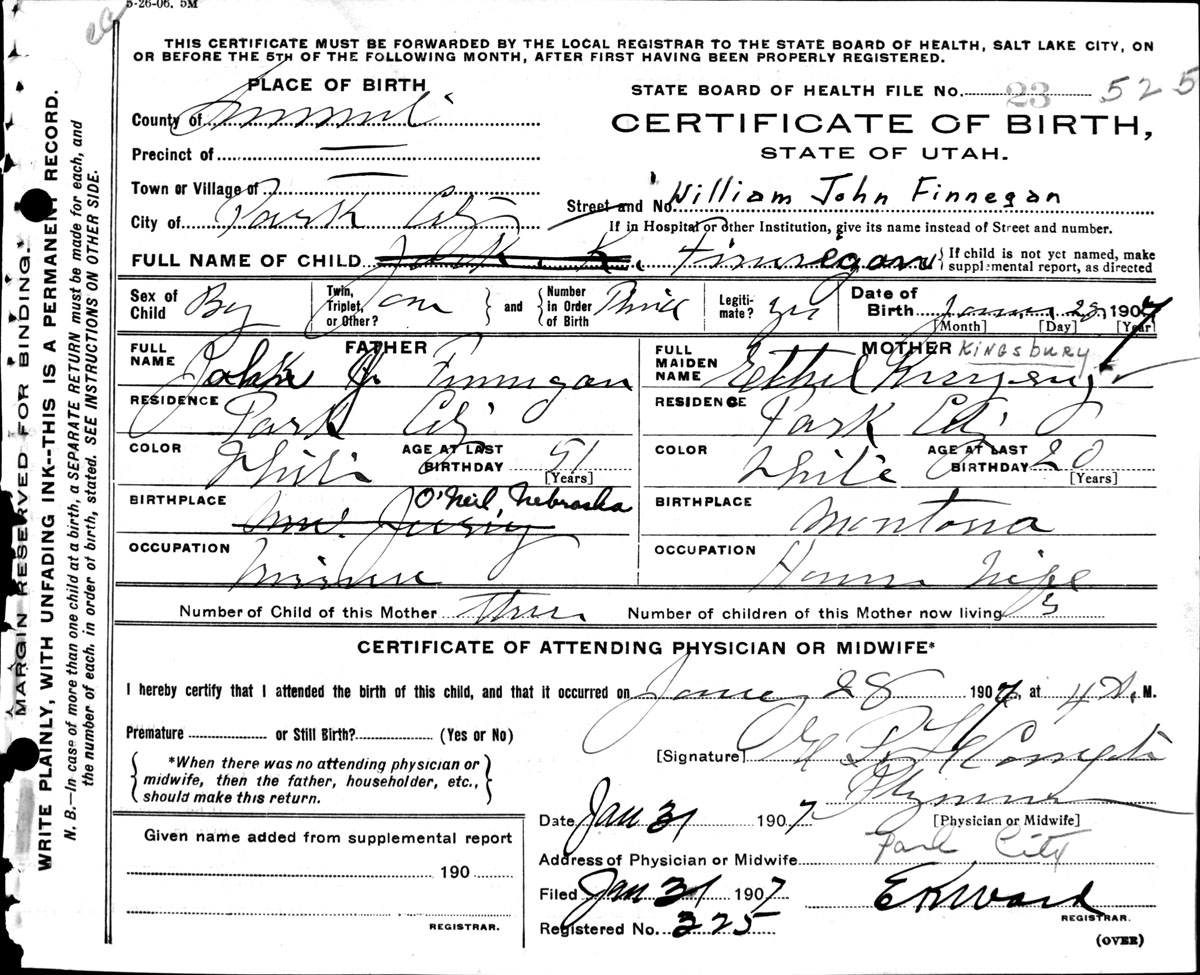 5-26-06. 5M
THIS CERTIFICATE MUST BE FORWARDED BY THE LOCAL REGISTRAR TO THE STATE BOARD OF HEALTH, SALT LAKE CITY, ON
OR BEFORE THE 5TH OF THE FOLLOWING MONTH, AFTER FIRST HAVING BEEN PROPERLY REGISTERED.
PLACE OF BIRTH
STATE BOARD OF HEALTH FILE No. 23 525
County of Summit
CERTIFICATE OF BIRTH,
Precinct of —
STATE OF UTAH.
Town or Village of —
Street and No. William John Finnegan
City of Park City
If in Hospital or other Institution, give its name instead of Street and number.
FULL NAME OF CHILD K. Finnegan { If child is not yet named, make supplemental report, as directed
Sex of Child Boy { Twin, Triplet, or Other? } and { Number in Order of Birth Third Legitimate? yes Date of Birth 28, 1907
[Month] [Day] [Year]
FATHER
MOTHER Kingsbury
FULL NAME John J. Finnegan
FULL MAIDEN NAME Ethel
RESIDENCE Park City
RESIDENCE Park City
COLOR White AGE AT LAST BIRTHDAY 51 [Years]
COLOR White AGE AT LAST BIRTHDAY 20 [Years]
BIRTHPLACE O'Neil, Nebraska
New Jersey
BIRTHPLACE Montana
OCCUPATION Miner
OCCUPATION House Wife
Number of Child of this Mother Three Number of children of this Mother now living 3
CERTIFICATE OF ATTENDING PHYSICIAN OR MIDWIFE*
I hereby certify that I attended the birth of this child, and that it occurred on 28 1907, at 4 M.
Premature or Still Birth? (Yes or No)
[Signature]
*When there was no attending physician or
midwife, then the father, householder, etc.,
should make this return.
[Physician or Midwife]
Date Jan 31 1907
Given name added from supplemental report
190
REGISTRAR.
Address of Physician or Midwife Park City
Filed Jan 31 1907 E K Ward
REGISTRAR.
Registered No. 325
(OVER)
MARGIN RESERVED FOR BINDING.
WRITE PLAINLY, WITH UNFADING INK--THIS IS A PERMANENT RECORD.
N. B.—In case of more than one child at a birth, a SEPARATE RETURN must be made for each, and
the number of each, in order of birth, stated. SEE INSTRUCTIONS ON OTHER SIDE.